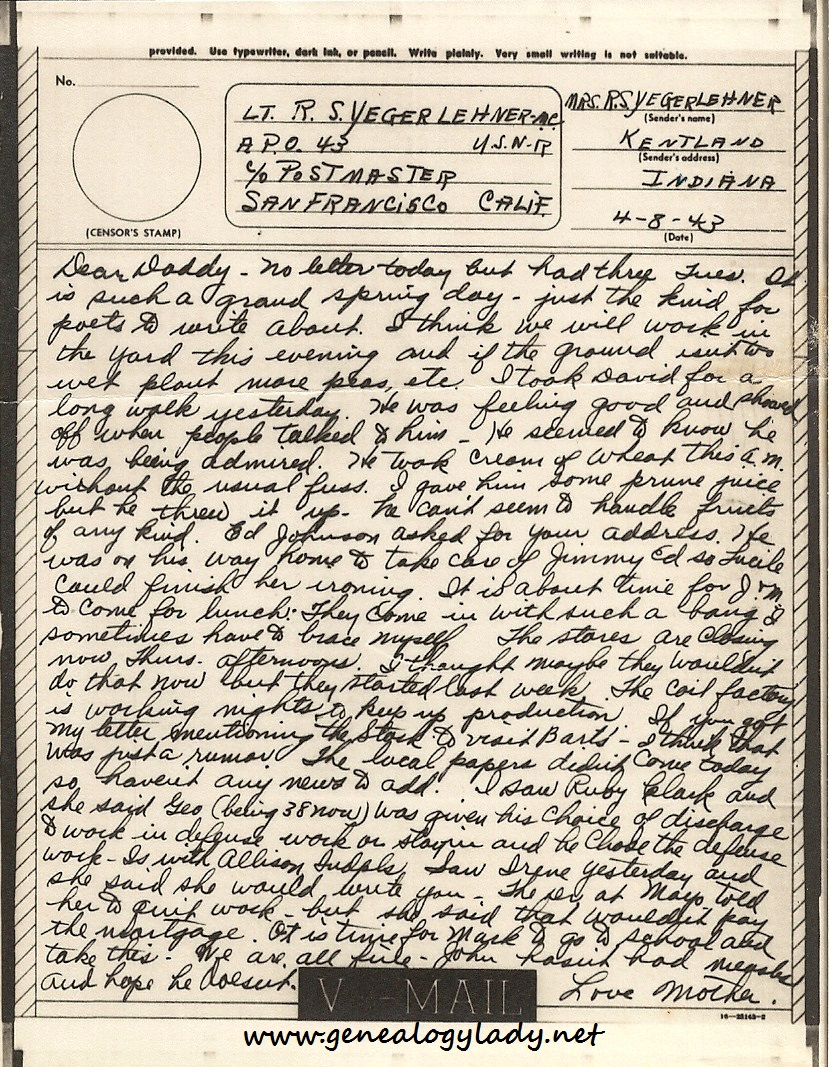 provided. Use typewriter, dark ink, or pencil. Write plainly. Very small writing is not suitable.
No.
(CENSOR'S STAMP)
LT. R. S. YEGERLEHNER-MC.
A.P.O. 43 U.S.N-R
c/o POSTMASTER
SAN FRANCISCO CALIF.
MRS. R.S. YEGERLEHNER
(Sender's name)
KENTLAND
(Sender's address)
INDIANA
4-8-43
(Date)
Dear Daddy - No letter today but had three Tues. It
is such a grand spring day - just the kind for
poets to write about. I think we will work in
the yard this evening and if the ground isn't too
wet plant more peas, etc. I took David for a
long walk yesterday. He was feeling good and showed
off when people talked to him - He seemed to know he
was being admired. He took cream of wheat this a.m.
without the usual fuss. I gave him some prune juice
but he threw it up - he can't seem to handle fruits
of any kind. Ed Johnson asked for your address. He
was on his way home to take care of Jimmy Ed so Lucile
could finish her ironing. It is about time for J + M
to come for lunch. They come in with such a bang I
sometimes have to brace myself. The stores are closing
now Thurs. afternoons. I thought maybe they wouldn't
do that now but they started last week. The coil factory
is working nights to keep up production. If you got
my letter mentioning the Stork to visit Barts - I think that
was just a rumor. The local papers didn't come today
so haven't any news to add. I saw Ruby Clark and
she said Geo (being 38 now) was given his choice of discharge
to work in defense work or stayin and he chose the defense
work - Is with Allison, Indpls. Saw Irene yesterday and
she said she would write you - The Dr. at Mayo told
her to quit work - but she said that wouldn't pay
the mortgage. It is time for Mark to go to school and
take this. We are all fine - John hasn't had measles
and hope he doesn't.
Love Mother.
V - MAIL
16-28143-2
www.genealogylady.net